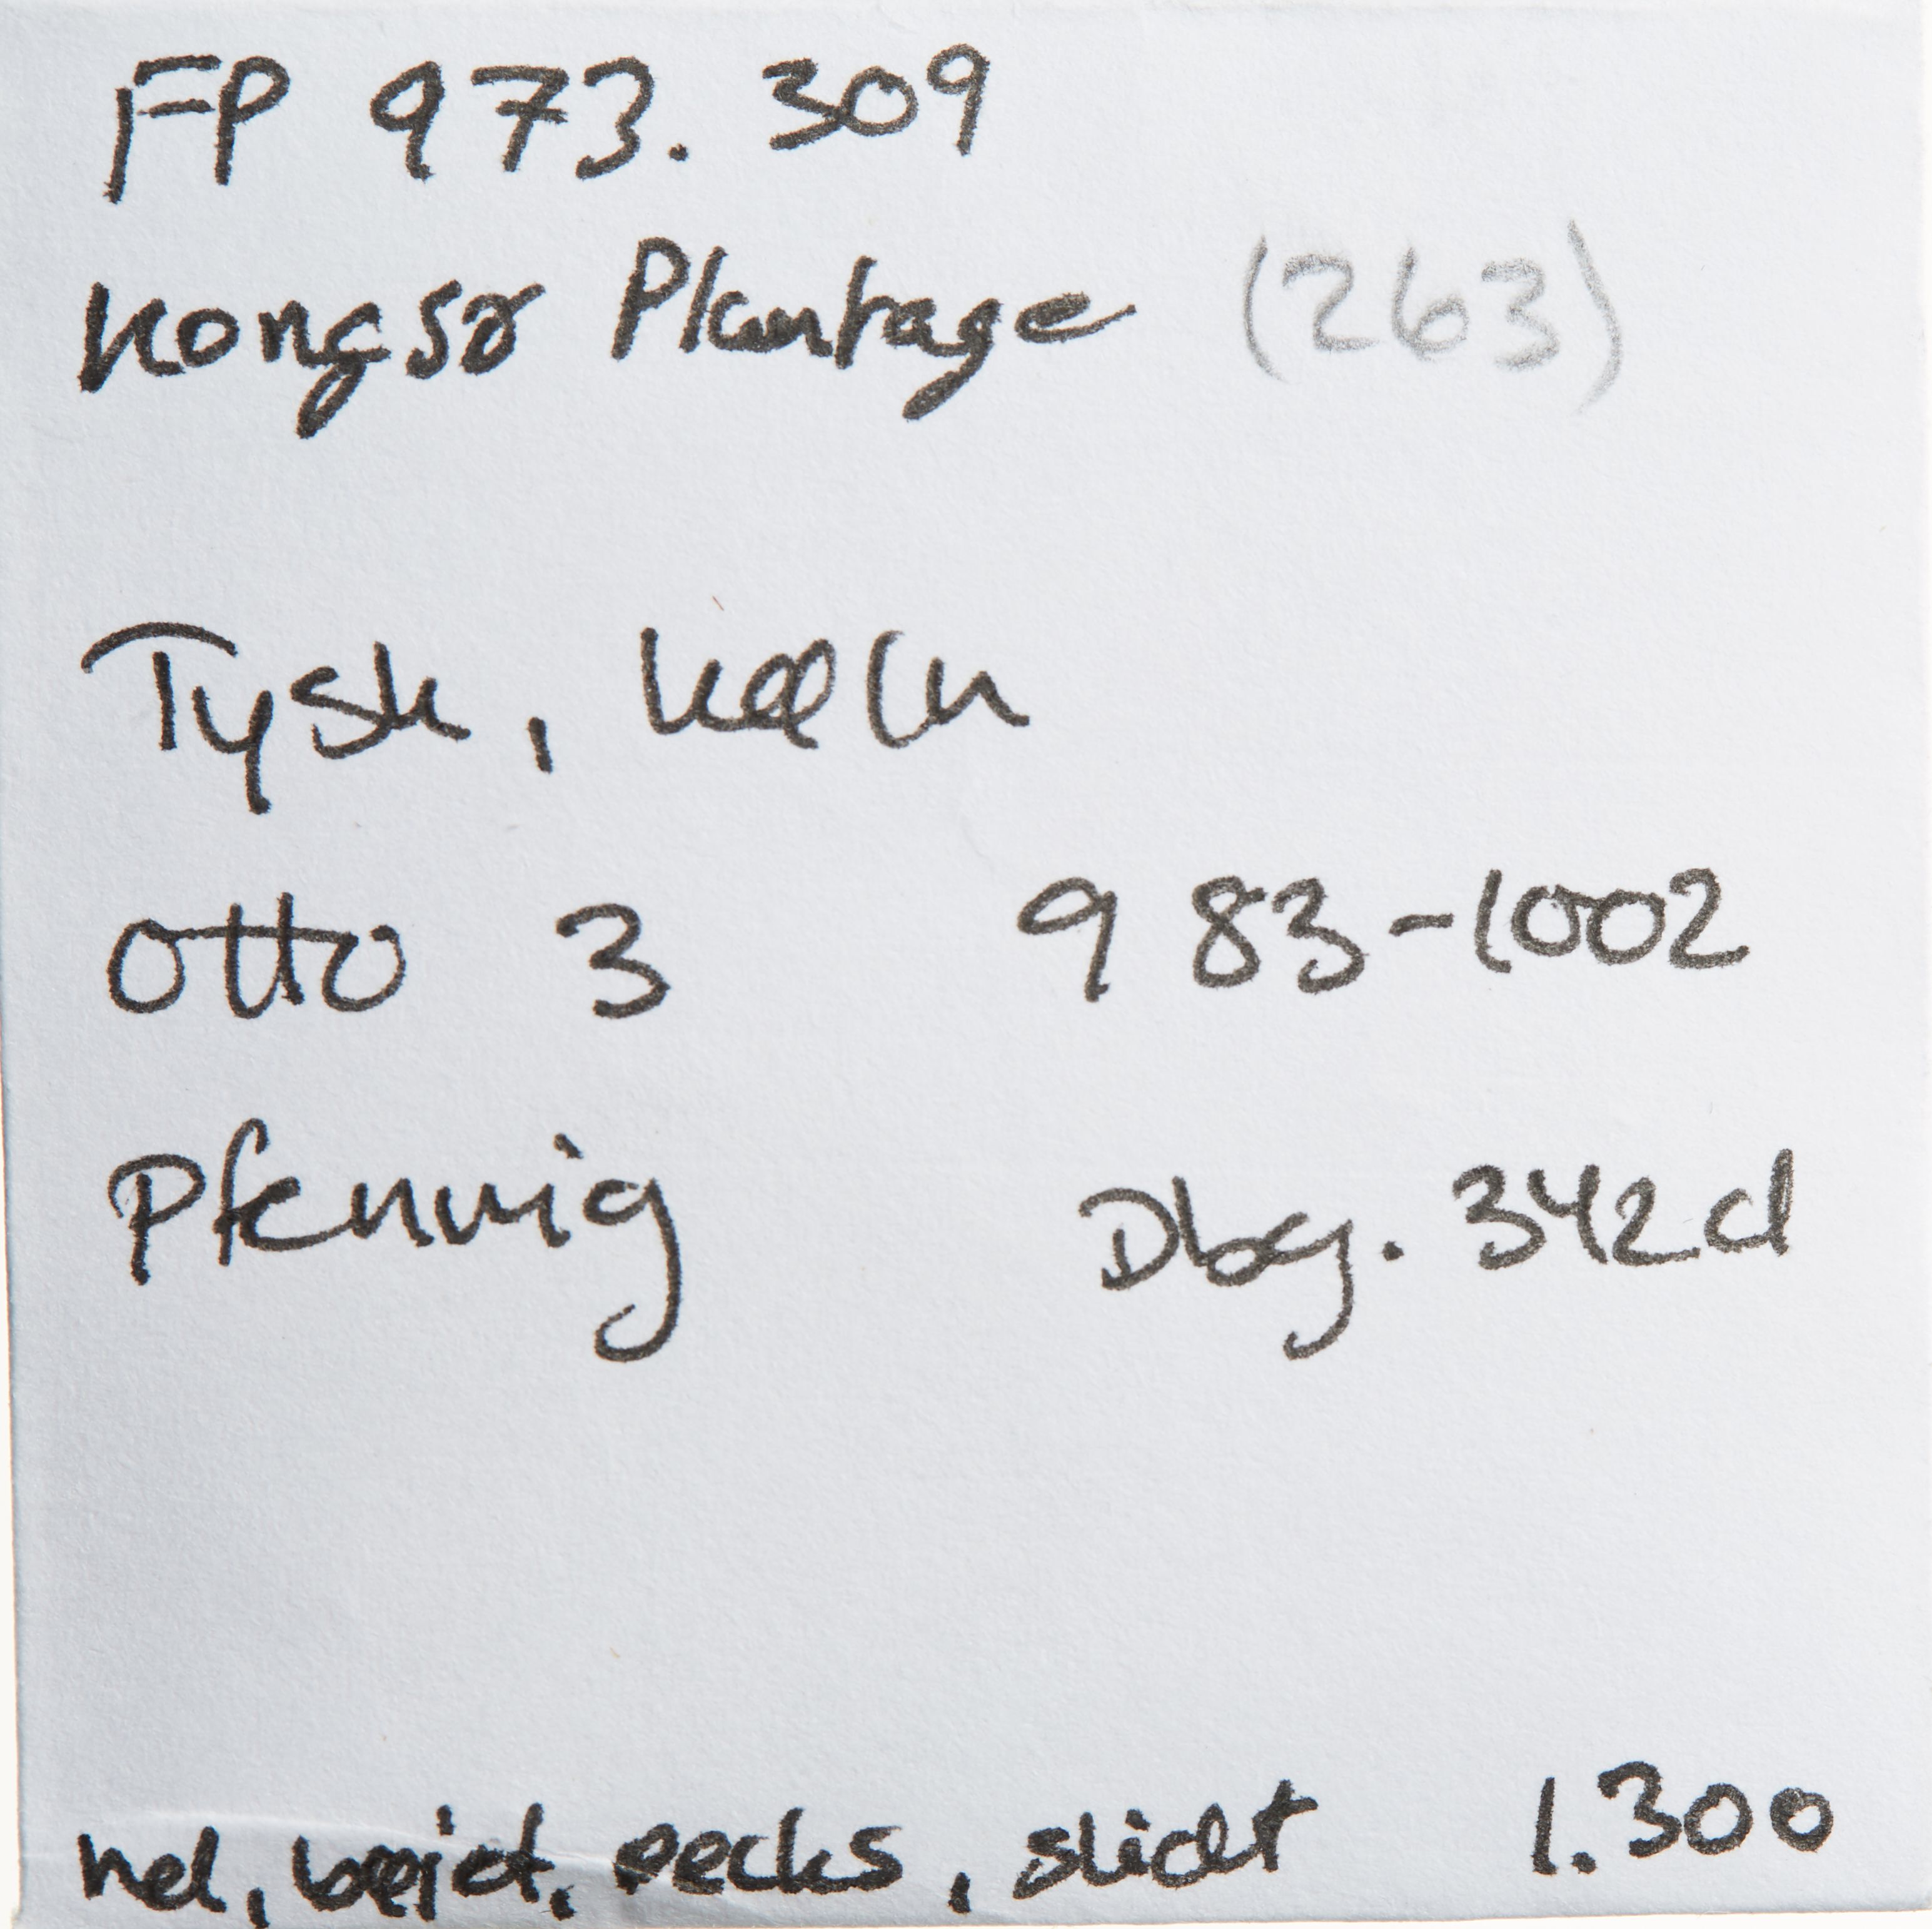 FP 973.309
Kongsø Plantage (263)
Tysk, Køln
Otto 3 983-1002
Pfennig Dbg. 342d
hel, bøjet, pecks, slidt 1.300